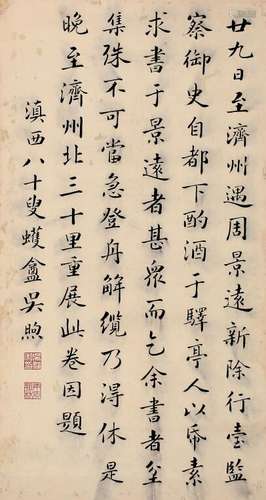 廿九日至濟州遇周景遠新除行臺監
察御史自都下酌酒于驛亭人以帋素
求書于景遠者甚衆而乞余書者坌
集殊不可當急登舟解纜乃得休是
晚至濟州北三十里重展此卷因題
滇西八十叟蠖盦吳煦